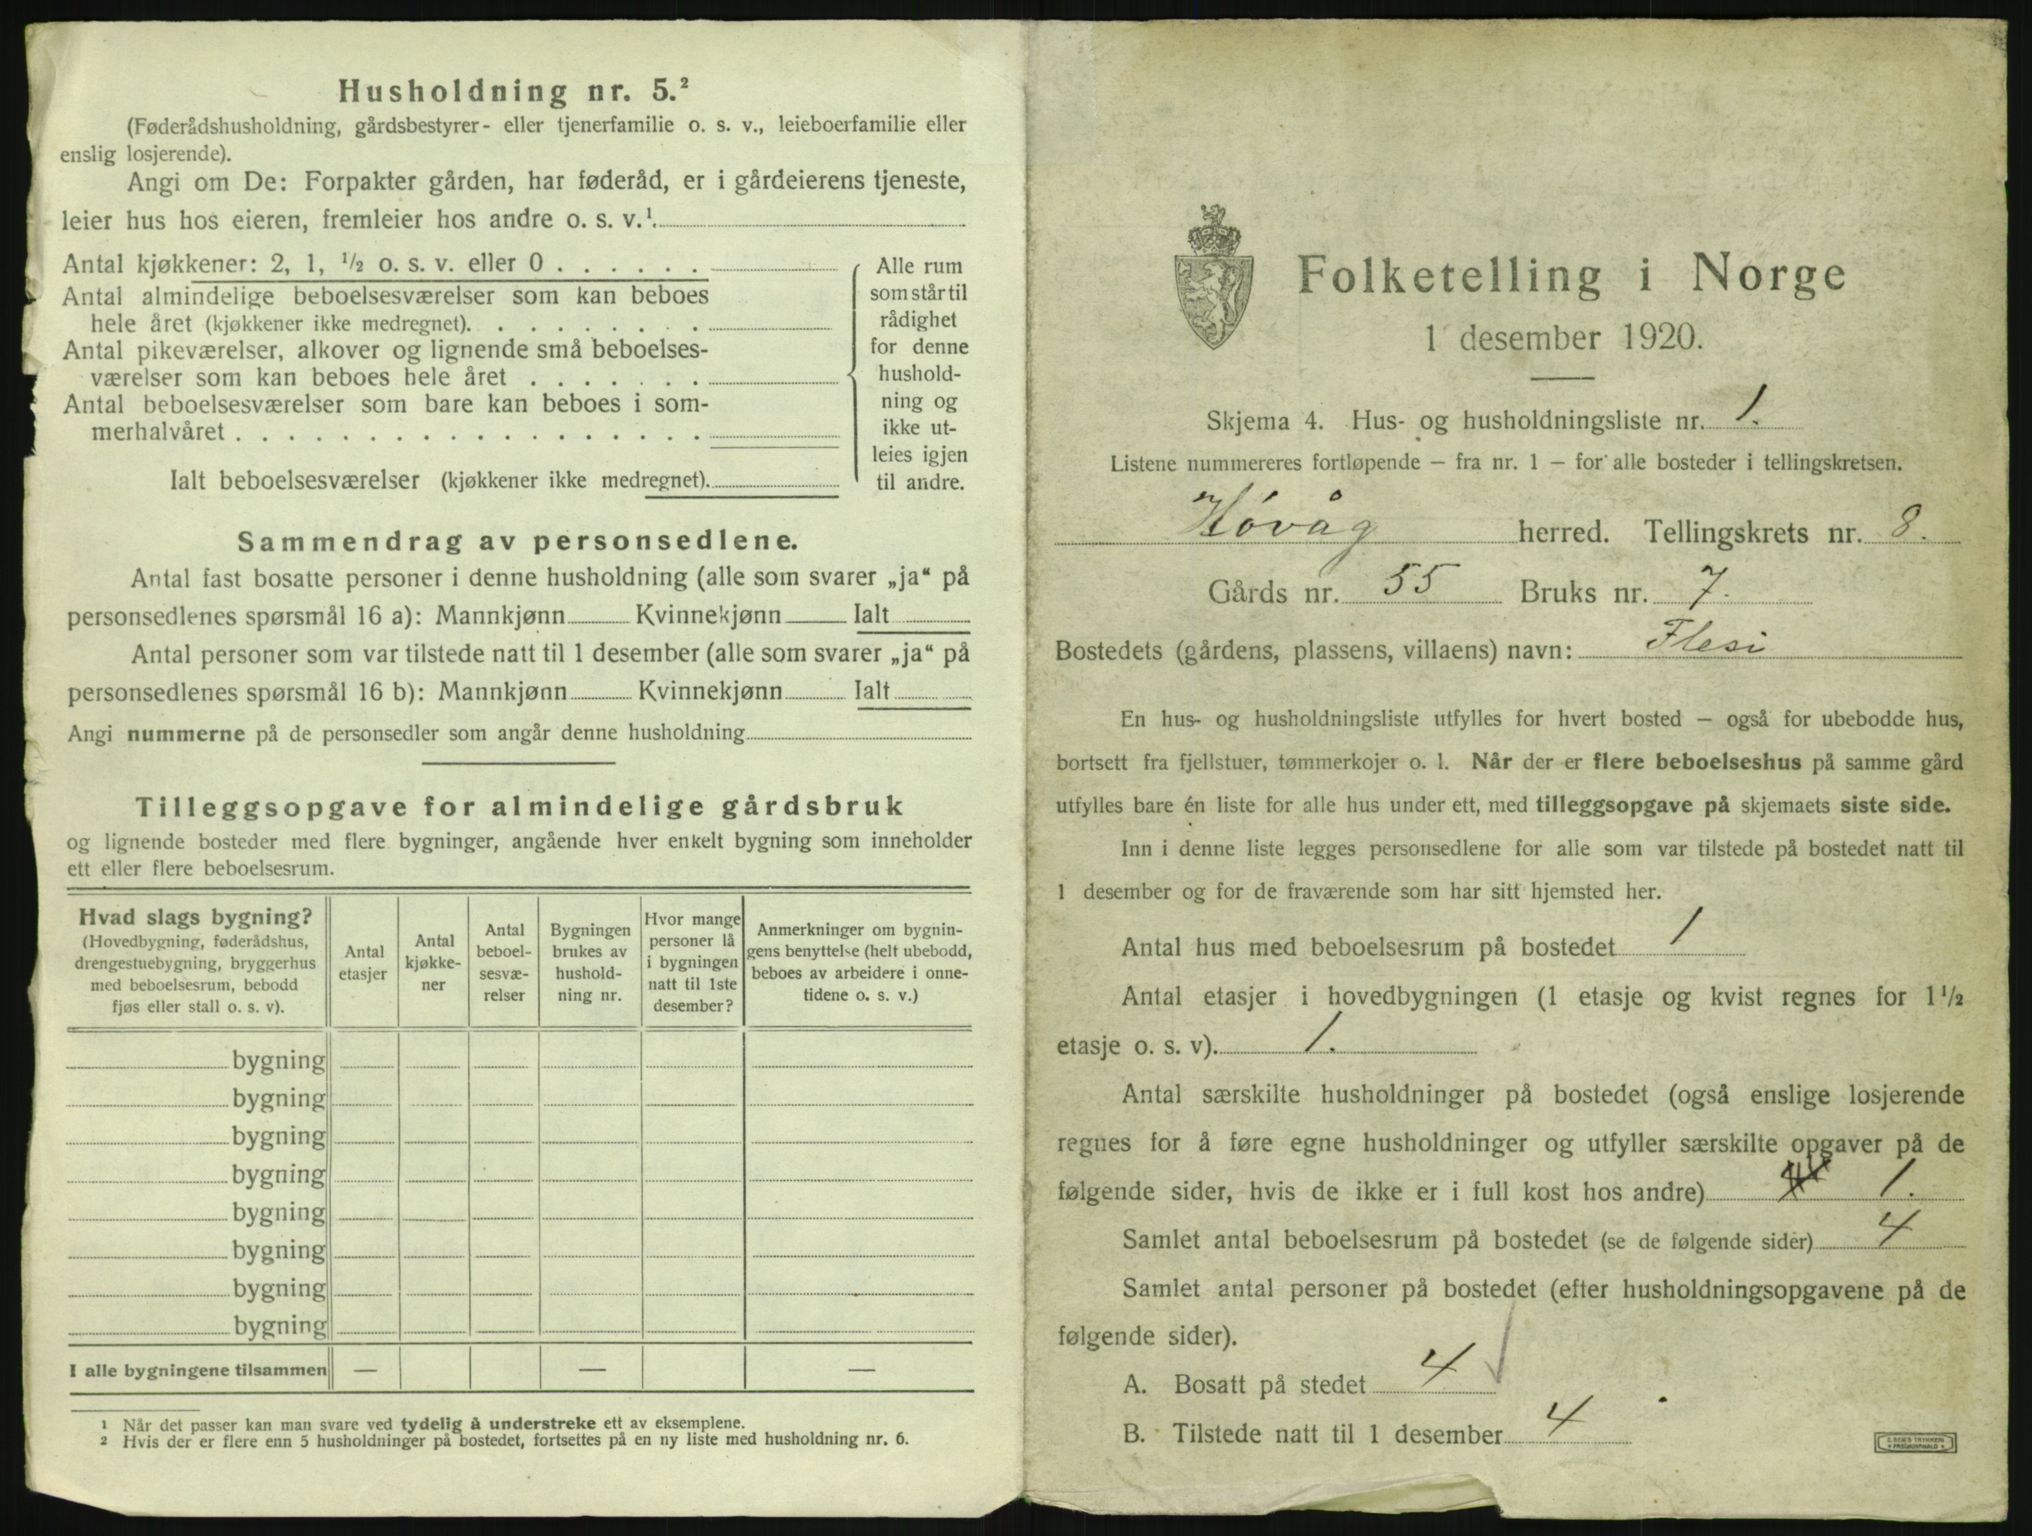 Husholdning nr. 5.²
(Føderådshusholdning, gårdsbestyrer- eller tjenerfamilie o. s. v., leieboerfamilie eller
enslig losjerende).
Angi om De: Forpakter gården, har føderåd, er i gårdeierens tjeneste,
leier hus hos eieren, fremleier hos andre o. s. v.¹
Antal kjøkkener: 2, 1, ½ o. s. v. eller 0 . . . . . .
Antal almindelige beboelsesværelser som kan beboes
hele året (kjøkkener ikke medregnet). . . . . . . . .
Antal pikeværelser, alkover og lignende små beboelses-
værelser som kan beboes hele året . . . . . . .
Antal beboelsesværelser som bare kan beboes i som-
merhalvåret . . . . . . . . . . . . . . . . . .
Ialt beboelsesværelser (kjøkkener ikke medregnet).
Alle rum
som står til
rådighet
for denne
hushold-
ning og
ikke ut-
leies igjen
til andre.
Sammendrag av personsedlene.
Antal fast bosatte personer i denne husholdning (alle som svarer „ja“ på
personsedlenes spørsmål 16 a): Mannkjønn Kvinnekjønn Ialt
Antal personer som var tilstede natt til 1 desember (alle som svarer „ja“ på
personsedlenes spørsmål 16 b): Mannkjønn Kvinnekjønn Ialt
Angi nummerne på de personsedler som angår denne husholdning
Tilleggsopgave for almindelige gårdsbruk
og lignende bosteder med flere bygninger, angående hver enkelt bygning som inneholder
ett eller flere beboelsesrum.
Hvad slags bygning?
(Hovedbygning, føderådshus,
drengestuebygning, bryggerhus
med beboelsesrum, bebodd
fjøs eller stall o. s. v).
Antal
etasjer
Antal
kjøkke-
ner
Antal
beboel-
sesvæ-
relser
Bygningen
brukes av
hushold-
ning nr.
Hvor mange
personer lå
i bygningen
natt til 1ste
desember?
Anmerkninger om bygnin-
gens benyttelse (helt ubebodd,
beboes av arbeidere i onne-
tidene o. s. v.)
bygning
bygning
bygning
bygning
bygning
bygning
bygning
bygning
I alle bygningene tilsammen — — —
¹ Når det passer kan man svare ved tydelig å understreke ett av eksemplene.
² Hvis der er flere enn 5 husholdninger på bostedet, fortsettes på en ny liste med husholdning nr. 6.
Folketelling i Norge
1 desember 1920.
Skjema 4. Hus- og husholdningsliste nr. 1.
Listene nummereres fortløpende – fra nr. 1 – for alle bosteder i tellingskretsen.
Høvåg herred. Tellingskrets nr. 8.
Gårds nr. 55 Bruks nr. 7.
Bostedets (gårdens, plassens, villaens) navn: Flesi
En hus- og husholdningsliste utfylles for hvert bosted – også for ubebodde hus,
bortsett fra fjellstuer, tømmerkojer o. l. Når der er flere beboelseshus på samme gård
utfylles bare én liste for alle hus under ett, med tilleggsopgave på skjemaets siste side.
Inn i denne liste legges personsedlene for alle som var tilstede på bostedet natt til
1 desember og for de fraværende som har sitt hjemsted her.
Antal hus med beboelsesrum på bostedet 1
Antal etasjer i hovedbygningen (1 etasje og kvist regnes for 1½
etasje o. s. v). 1.
Antal særskilte husholdninger på bostedet (også enslige losjerende
regnes for å føre egne husholdninger og utfyller særskilte opgaver på de
følgende sider, hvis de ikke er i full kost hos andre) 1.
Samlet antal beboelsesrum på bostedet (se de følgende sider) 4
Samlet antal personer på bostedet (efter husholdningsopgavene på de
følgende sider).
A. Bosatt på stedet 4
B. Tilstede natt til 1 desember 4